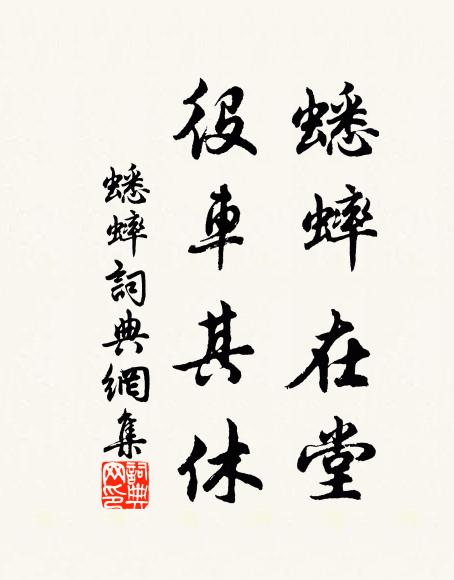 蟋蟀在堂
役車其休
蟋蟀詞典網集
詞典网印